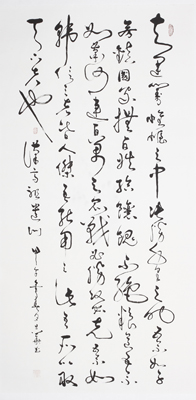 夫運籌帷幄之中決勝千里之外吾不如子
房鎮國家撫百姓給餽餉不絕糧道吾不
如蕭何連百萬之衆戰必勝攻必克吾不如
韓信三者皆人傑吾能用之此吾所以取
天下者也 漢高祖遺訓 甲午年